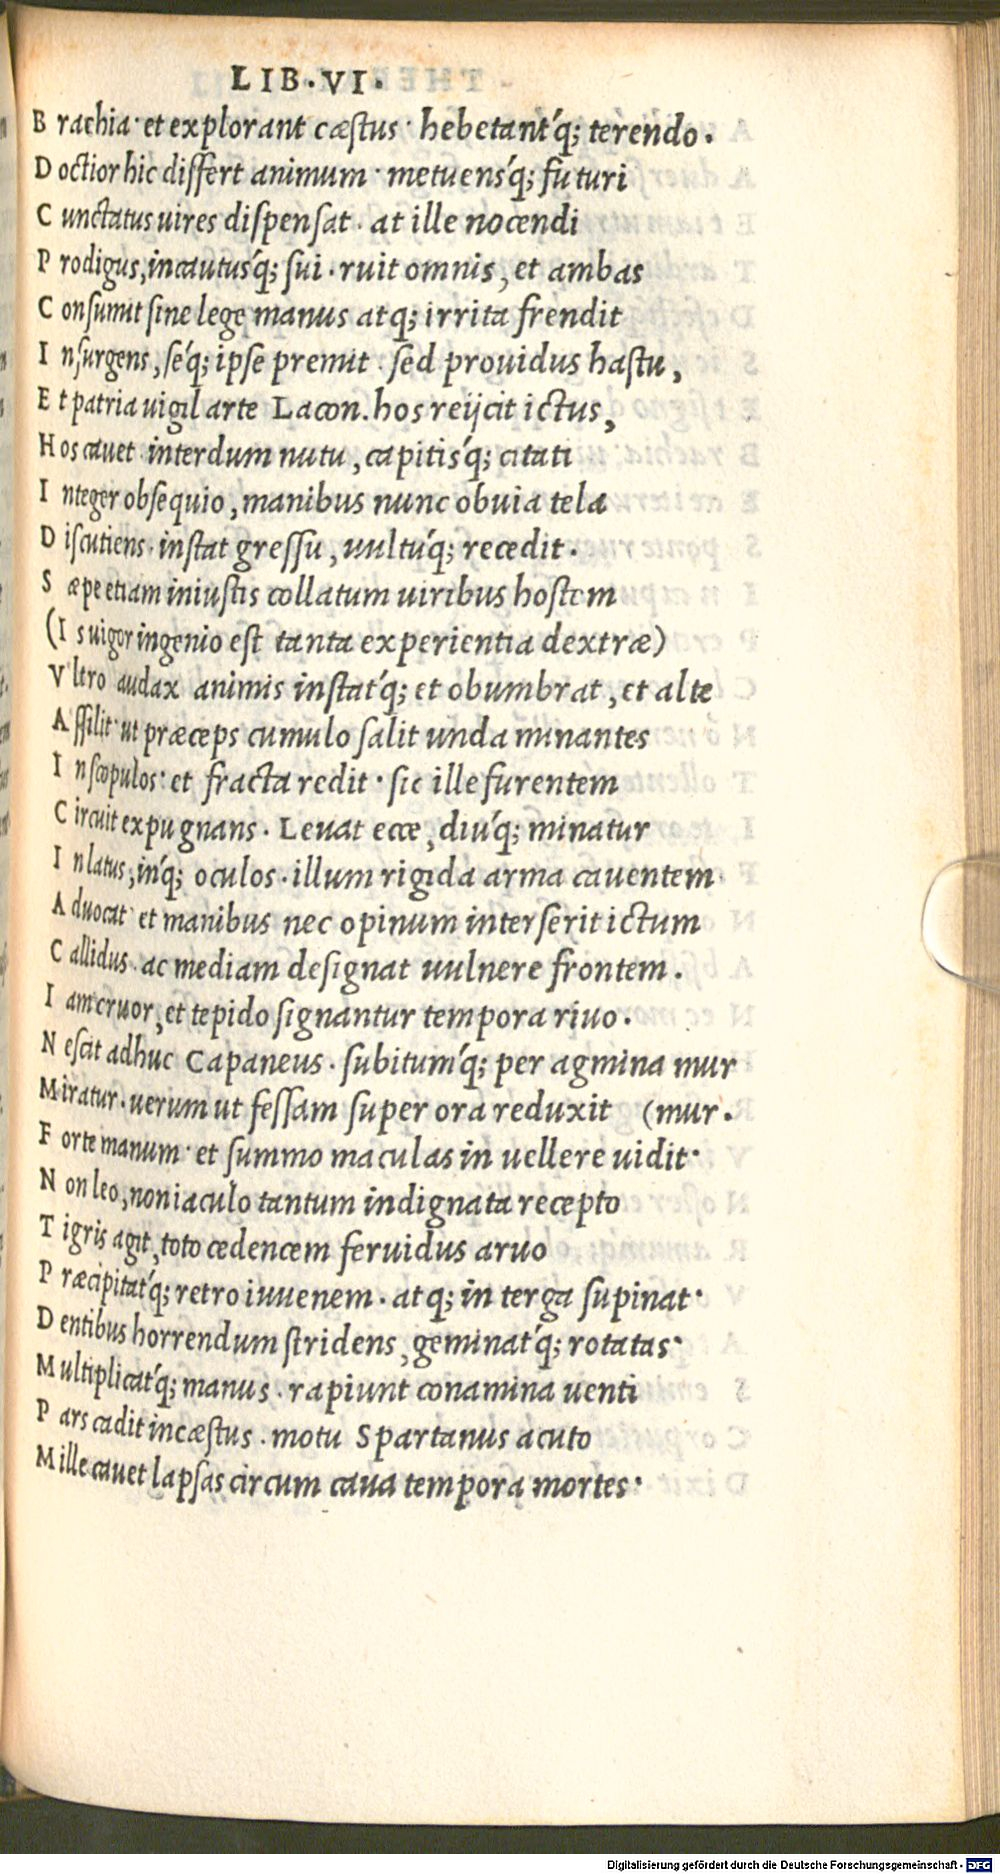 LIB.VI.
B rachia· et explorant cæstus· hebetant'q; terendo.
D octior hic differt animum· metuens'q; futuri
C unctatus uires dispensat. at ille nocendi
P rodigus, incautus'q; sui. ruit omnis, et ambas
C onsumit sine lege manus atq; irrita frendit
I nsurgens, se'q; ipse premit. sed prouidus hastu,
E t patria uigil arte Lacon. hos reijcit ictus,
H os cauet. interdum nutu, capitis'q; citati
I nteger obsequio, manibus nunc obuia tela
D iscutiens. instat gressu, uultu'q; recedit.
S æpe etiam iniustis collatum uiribus hostem
(I s uigor ingenio est tanta experientia dextræ)
V ltro audax animis instat'q; et obumbrat, et alte
A ssilit· ut præceps cumulo salit unda minantes
I n scopulos· et fracta redit· sic ille furentem
C ircuit expugnans. Leuat ecce, diu'q; minatur
I n latus, in'q; oculos. illum rigida arma cauentem
A duocat· et manibus nec opinum interserit ictum
C allidus. ac mediam designat uulnere frontem.
I am cruor, et tepido signantur tempora riuo.
N escit adhuc Capaneus. subitum'q; per agmina mur
M iratur. uerum ut fessam super ora reduxit (mur.
F orte manum· et summo maculas in uellere uidit·
N on leo, non iaculo tantum indignata recepto
T igris agit, toto cedencem feruidus aruo
P ræcipitat'q; retro iuuenem. atq; in terga supinat·
D entibus horrendum stridens, geminat'q; rotatas·
M ultiplicat'q; manus. rapiunt conamina uenti
P ars cadit in cæstus. motu Spartanus acuto
M ille cauet lapsas circum caua tempora mortes·
Digitalisierung gefördert durch die Deutsche Forschungsgemeinschaft - DFG